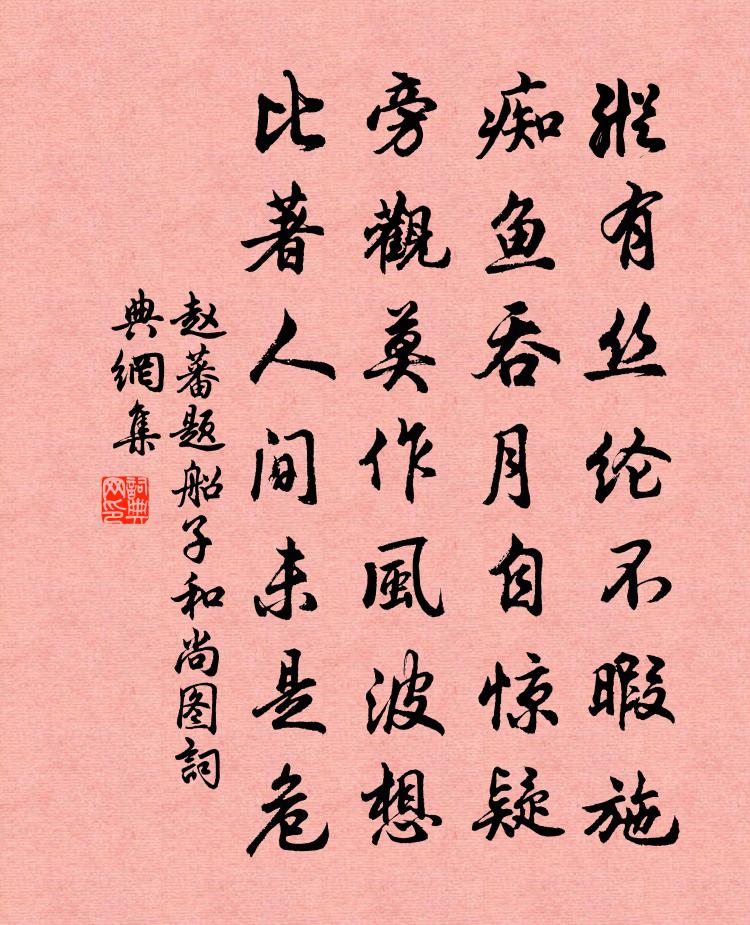 縱有丝纶不暇施
痴鱼吞月自惊疑
旁觀莫作風波想
比著人间未是危
赵蕃题船子和尚图詞
典網集
詞典
网印